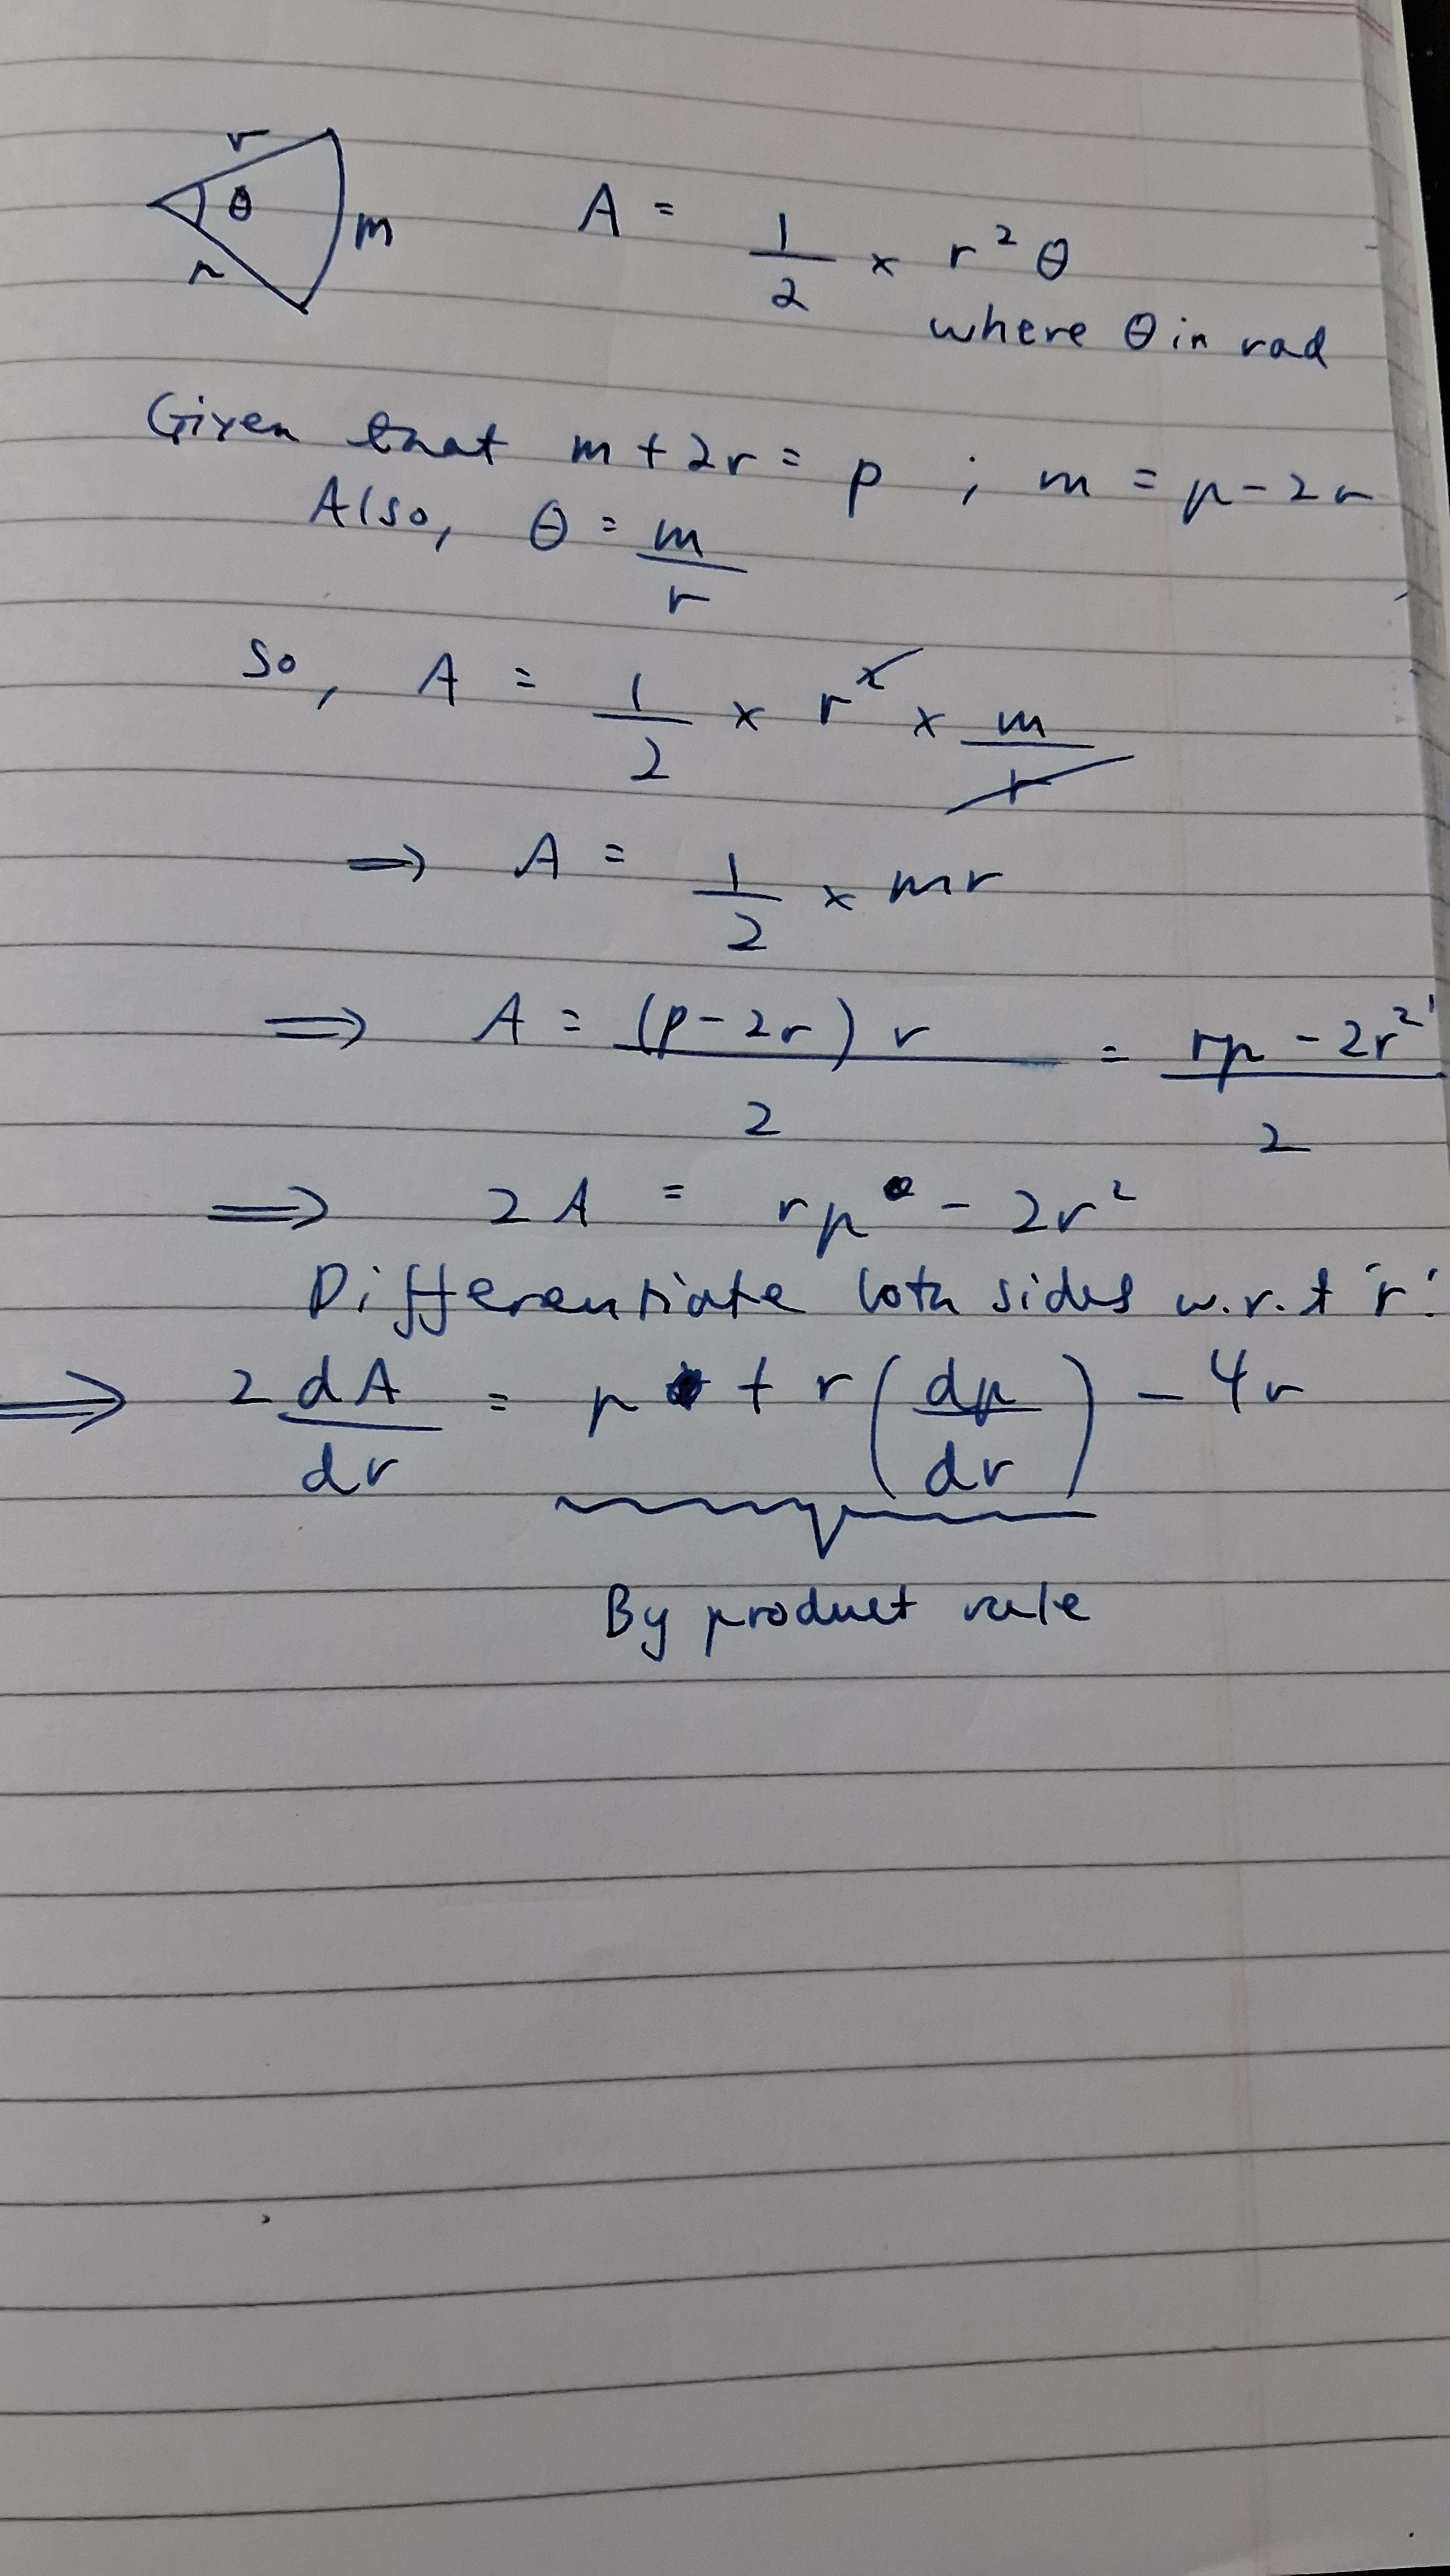 r
θ
m
r
A = 1/2 × r² θ
where θ in rad
Given that m + 2r = p ; m = p - 2r
Also, θ = m/r
So, A = 1/2 × r² × m/r
⇒ A = 1/2 × mr
⇒ A = (p - 2r) r / 2 = (rp - 2r²) / 2
⇒ 2A = rp - 2r²
Differentiate both sides w.r.t 'r'
⇒ 2 dA/dr = p + r (dp/dr) - 4r
By product rule